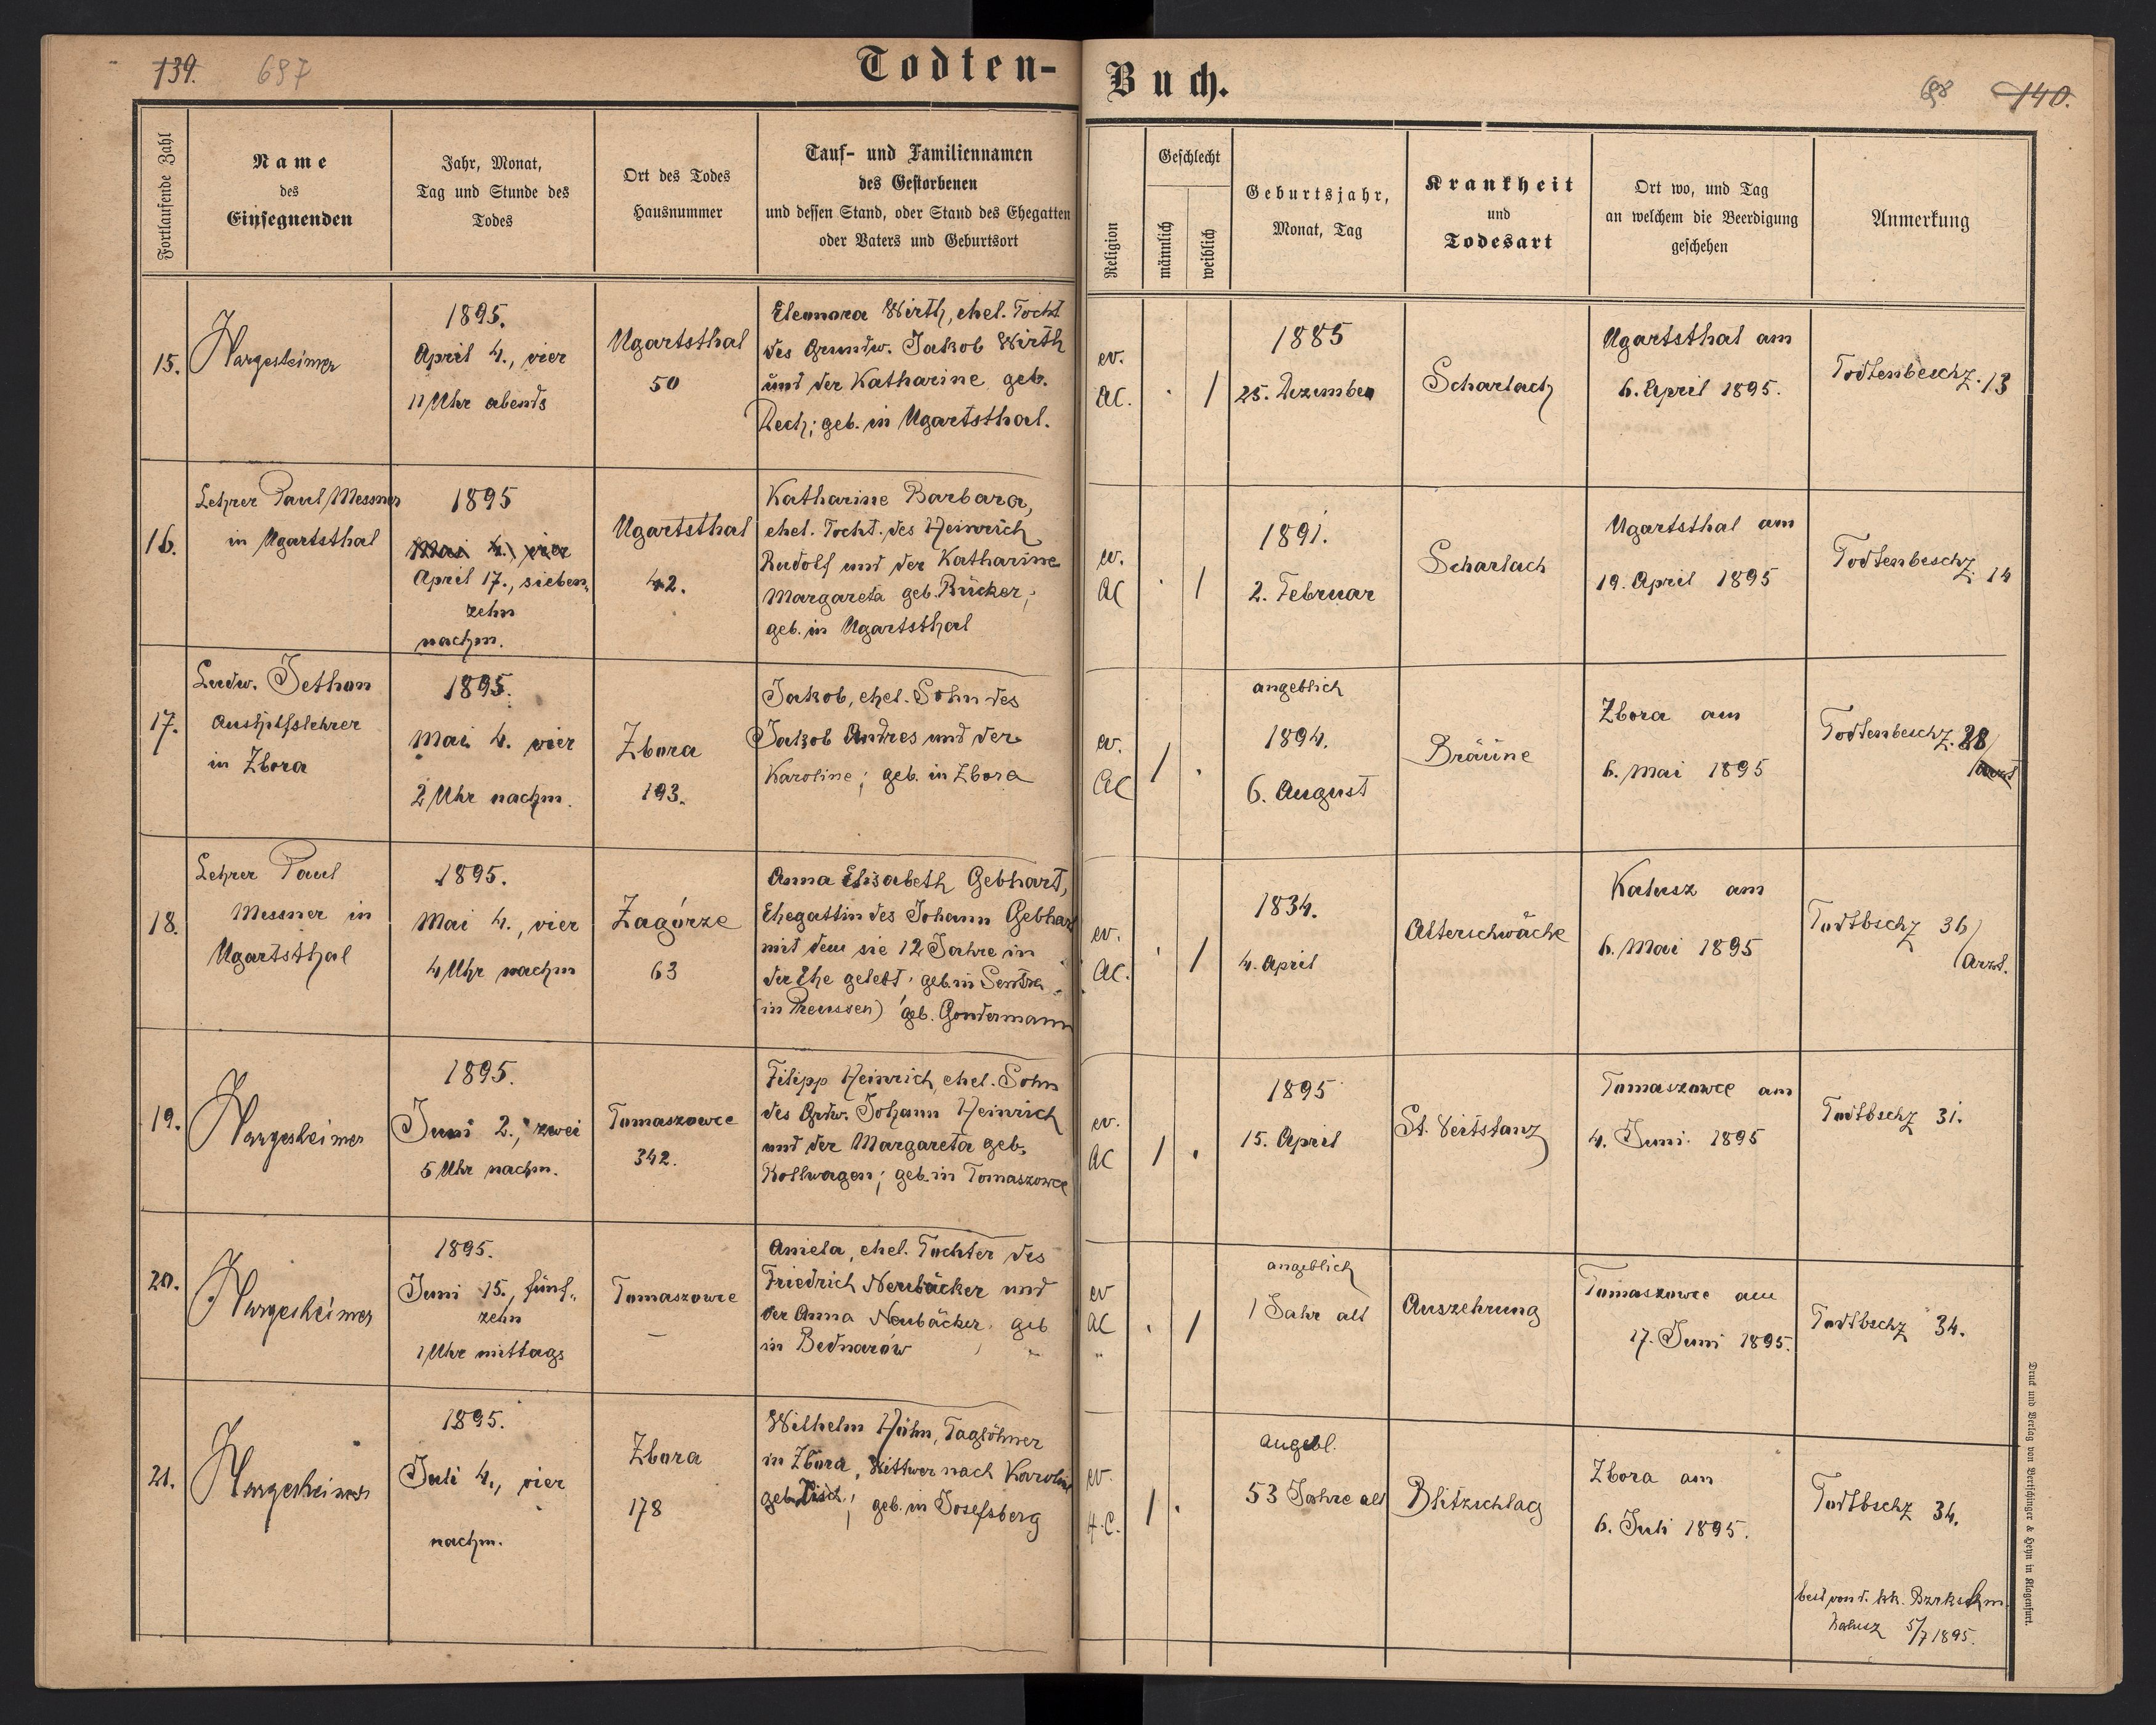 139. 697
Todten-
Buch.
68 140.
Fortlaufende Zahl
Name
des
Einsegnenden
Jahr, Monat,
Tag und Stunde des
Todes
Ort des Todes
Hausnummer
Tauf- und Familiennamen
des Gestorbenen
und dessen Stand, oder Stand des Ehegatten
oder Vaters und Geburtsort
Religion
Geschlecht
männlich
weiblich
Geburtsjahr,
Monat, Tag
Krankheit
und
Todesart
Ort wo, und Tag
an welchem die Beerdigung
geschehen
Anmerkung
15.
Hargesheimer
1895.
April 4., vier
11 Uhr abends
Ugartsthal
50
Eleonora Wirth, ehel. Tocht
des Grundw. Jakob Wirth
und der Katharine geb.
Rech; geb. in Ugartsthal.
ev.
AC.
. /
1885
25. Dezember
Scharlach
Ugartsthal am
6. April 1895.
Todtenbeschz. 13
16.
Lehrer Paul Messner
in Ugartsthal
1895
Mai 4. vier
April 17., sieben,
zehn
nachm.
Ugartsthal
42.
Katharine Barbara,
ehel. Tocht. des Heinrich
Rudolf und der Katharine
Margareta geb. Bücker;
geb. in Ugartsthal
ev.
AC
. /
1891.
2. Februar
Scharlach
Ugartsthal am
19. April 1895
Todtenbeschz. 14
17.
Ludw. Jethon
Aushilfslehrer
in Zbora
1895.
Mai 4. vier
2 Uhr nachm.
Zbora
193.
Jakob, ehel. Sohn des
Jakob Andres und der
Karoline; geb. in Zbora
ev.
AC
/ .
angeblich
1894.
6. August
Bräune
Zbora am
6. Mai 1895
Todtenbeschz. 28/
/Arzt
18.
Lehrer Paul
Messner in
Ugartsthal
1895.
Mai 4., vier
4 Uhr nachm
Zagórze
63
Anna Elisabeth Gebhart,
Ehegattin des Johann Gebhart
mit dem sie 12 Jahre in
der Ehe gelebt; geb. in
(in Preussen) geb. Gondermann
ev.
AC.
. /
1834.
4. April
Alterschwäche
Kalusz am
6. Mai 1895
Todtbschz 36/
/Arzt.
19.
Hargesheimer
1895.
Juni 2., zwei
5 Uhr nachm.
Tomaszowce
342.
Filipp Heinrich, ehel. Sohn
des Grdw. Johann Heinrich
und der Margareta geb.
Kollwagen; geb. in Tomaszowce
ev.
AC
/ .
1895
15. April
St. Veitstanz
Tomaszowce am
4. Juni 1895
Todtbschz 31.
20.
Hargesheimer
1895.
Juni 15., fünf,
zehn
1 Uhr mittags
Tomaszowce
—
Amela, ehel. Tochter des
Friedrich Neubäcker und
der Anna Neubäcker, geb
in Bednarów
ev
AC
. /
angeblich
1 Jahr alt
Auszehrung
Tomaszowce am
17. Juni 1895.
Todtbschz 34.
21.
Hargesheimer
1895.
Juli 4., vier
nachm.
Zbora
178
Wilhelm Höhn, Taglöhner
in Zbora, Wittwer nach Karoline
geb. Disch; geb. in Josefsberg
ev.
H.C.
/ .
angebl.
53 Jahre alt
Blitzschlag
Zbora am
6. Juli 1895.
Todtbschz 34.
best von d. kk. Bzrkshm.
Kalusz 5/7 1895.
Druck und Verlag von Bertschinger & Heyn in Klagenfurt.